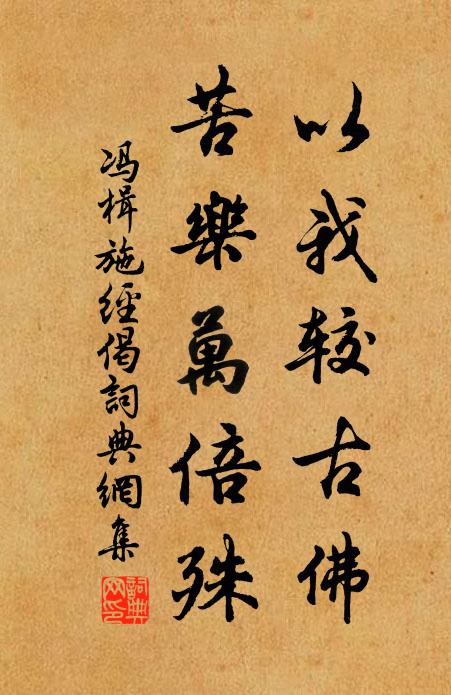 以我较古佛
苦樂萬倍殊
冯楫施經偈詞典網集
詞典網印